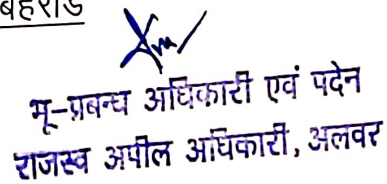 बहरोड
भू-प्रबन्ध अधिकारी एवं पदेन
राजस्व अपील अधिकारी, अलवर